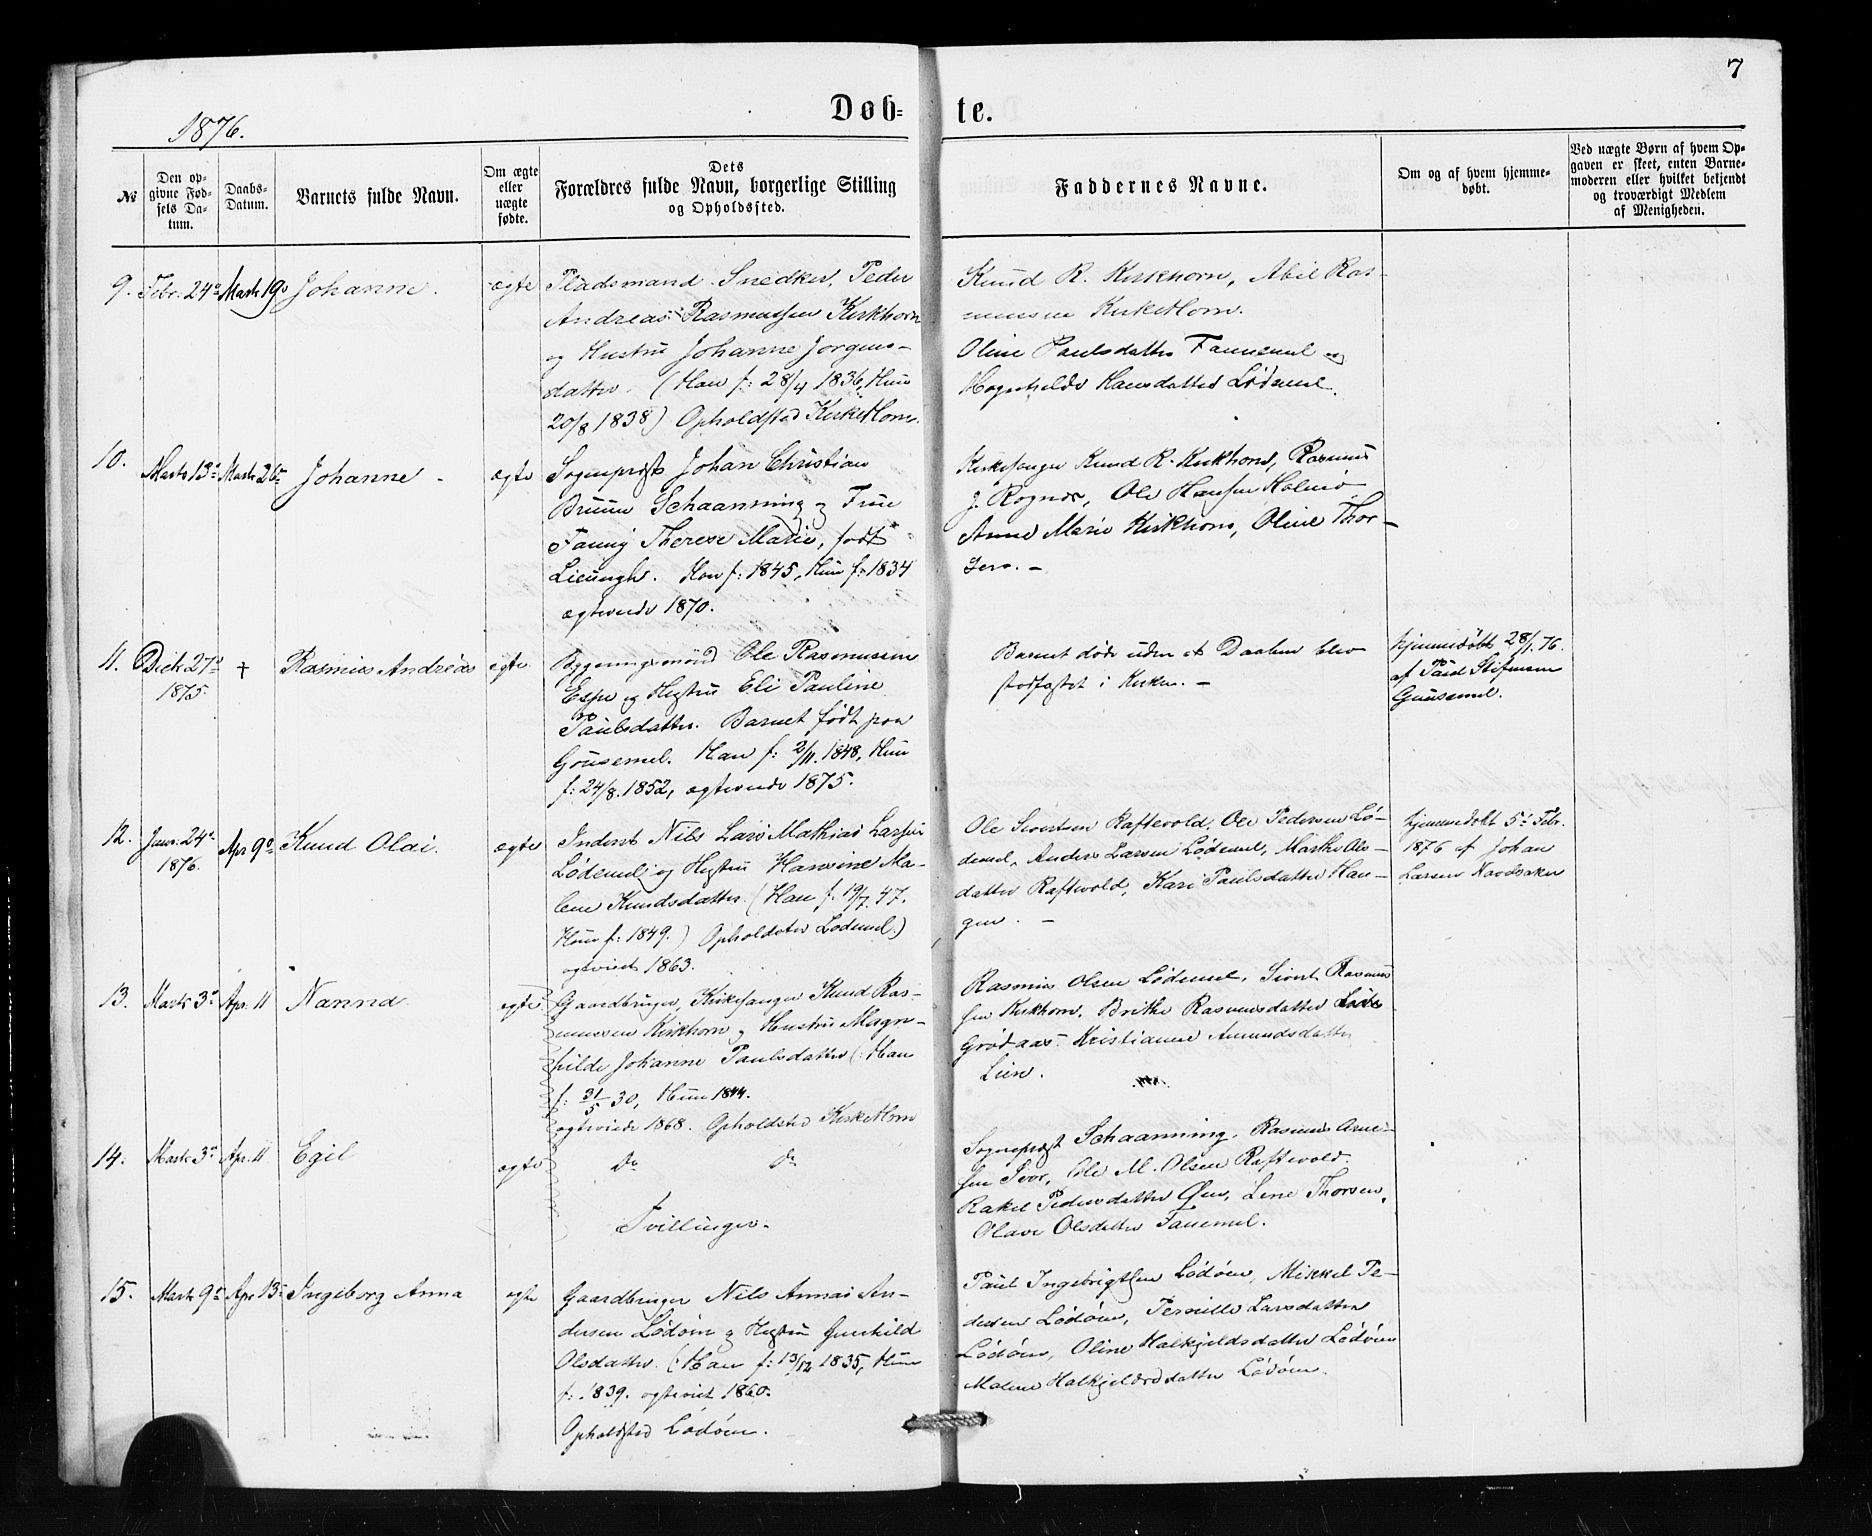 7
Døb= te.
1876.
№
Den op-
givne Fød-
sels Da-
tum.
Daabs-
Datum.
Barnets fulde Navn.
Om ægte
eller
uægte
fødte.
Dets
Forældres fulde Navn, borgerlige Stilling
og Opholdssted.
Faddernes Navne.
Om og af hvem hjemme-
døbt.
Ved uægte Børn af hvem Op-
gaven er skeet, enten Barne-
moderen eller hvilket bekjendt
og troværdigt Medlem
af Menigheden.
9. Febr. 24de Marts 19de Johanne. ægte
Pladsmand Snedker, Peder
Andreas Rasmussen Kirkhorn
og Hustru Johanne Jørgens-
datter. (Han f: 28/4 1836, Hun
20/8 1838) Opholdsted Kirkehorn.
Knud R. Kirkhorn, Abil Ras-
mussen Kirkehorn.
Oline Paulsdatter Fannemel og
Hansdatter Lødemel.
10. Marts 13de Marts 26de Johanne - ægte
Sognepræst Johan Christian
Bruun Schaanning og Frue
Fanny Therese Marie, født
Lieungh. Han f: 1845, Hun f: 1834
ægteviede 1870.
Kirkesanger Knud R. Kirkhorn, Rasmus
J. Rognes, Ole Hansen
Anne Marie Kirkhorn, Oline Thor-
sen. -
11. Decbr 27de
1875. † Rasmus Andreas ægte
Bygningsmand Ole Rasmussen
Espe og Hustru Eli Pauline
Paulsdatter. Barnet født paa
Gausemel. Han f: 2/11. 1848, Hun
f: 24/8. 1852, ægteviede 1875.
Barnet døde uden at Daaben blev
stadfæstet i Kirken. -
hjemmedøbt 28/1. 76.
af Paul Stefensen
Gausemel.
12. Janr. 24de
1876. Apr 9de Knud Olai. ægte
Inderst Nils Lars Mathias Larsen
Lødemel og Hustru Hansine Ma-
lene Knudsdatter. (Han f: 19/7. 47.
Hun f: 1849.) Opholdsted Lødemel.)
ægteviet 1863.
Ole Sivertsen Raftevold, Ole Pedersen Lø-
demel, Anders Larsen Lødemel, Marthe Ols-
datter Raftevold, Kari Paulsdatter Hau-
gen. -
hjemmedøbt 5te Febr.
1876 af Johan
Larsen
13. Marts 3de Apr. 11 Nanna ægte.
Gaardbruger, Kirkesanger Knud Ras-
mussen Kirkhorn og Hustru Magn-
hilde Johanne Paulsdatter (: Han
f: 31/5 30, Hun 1844.
ægteviede 1868. Opholdsted Kirkehorn
Rasmus Olsen Lødemel, Sivert Rasmus-
sen Kirkhorn, Brithe Rasmusdatter
Grodaas. Kristianne Amundsdatter
Lien.
14. Marts 3de Apr. 11 Egil ægte
Do Do
Tvillinger.
Sognepræst Schaanning, Rasmus Arne-
sen Tvor, Ole M. Olsen Raftevold.
Rakel Pedersdatter Øen, Lene Thorsen,
Olave Olsdatter Fannemel.
15. Marts 9de Apr 13de Ingeborg Anna ægte
Gaardbruger Nils Annas An-
dersen Lødøen og Hustru Gunhild
Olsdatter. (: Han f: 13/12 1835, Hun
f: 1839. ægteviet 1860.
Opholdsted Lødøen.
Paul Ingebrigtsen Lødøen, Mikkel Pe-
dersen Lødøen, Pernille Larsdatter
Lødøen, Oline Halkjeldsdatter Lødøen
Malene Halkjeldsdatter Lødøen.